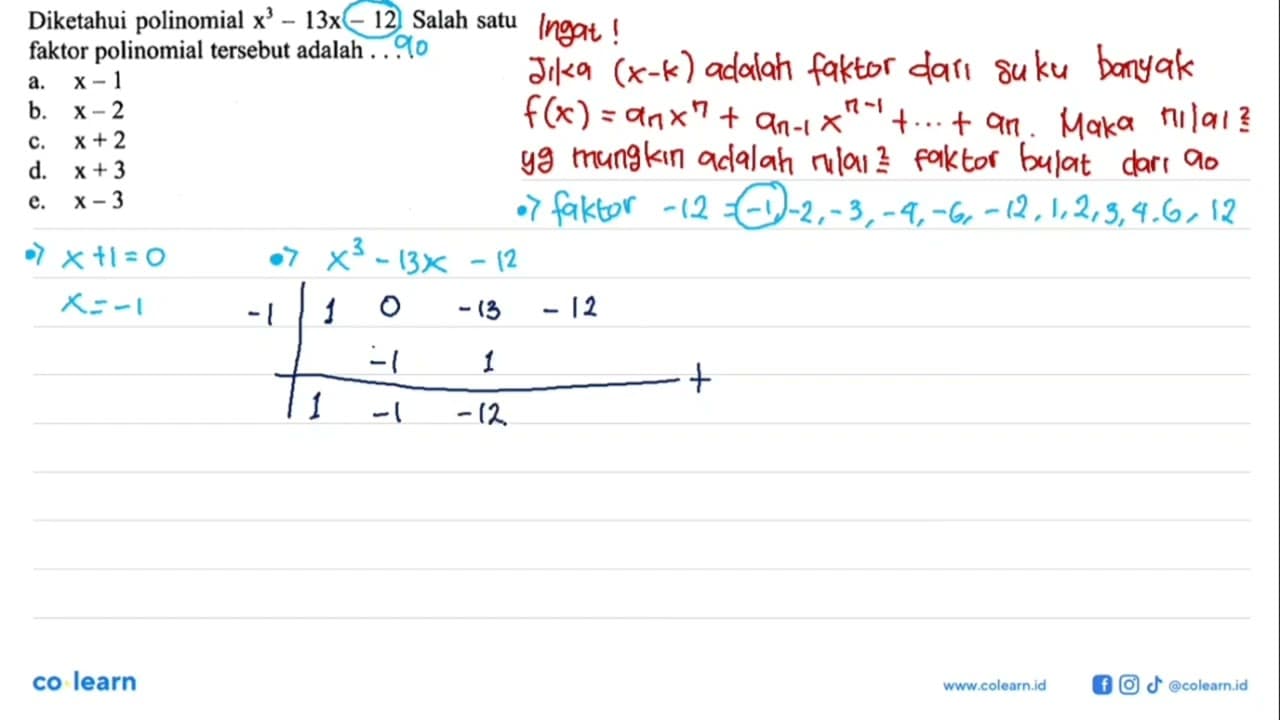 Diketahui polinomial x³ – 13x – 12. Salah satu
faktor polinomial tersebut adalah . . . .
a0
a. x – 1
b. x – 2
c. x + 2
d. x + 3
e. x – 3
Ingat !
Jika (x-k) adalah faktor dari suku banyak
f(x) = aₙxⁿ + aₙ₋₁xⁿ⁻¹ + ... + aₙ. Maka nilai²
yg mungkin adalah nilai² faktor bulat dari a0
•> faktor -12 = -1, -2, -3, -4, -6, -12, 1, 2, 3, 4. 6, 12
•> x +1 = 0
x = -1
•> x³ - 13x - 12
-1 | 1 0 -13 -12
-1 1 +
1 -1 -12
co learn
www.colearn.id
@colearn.id